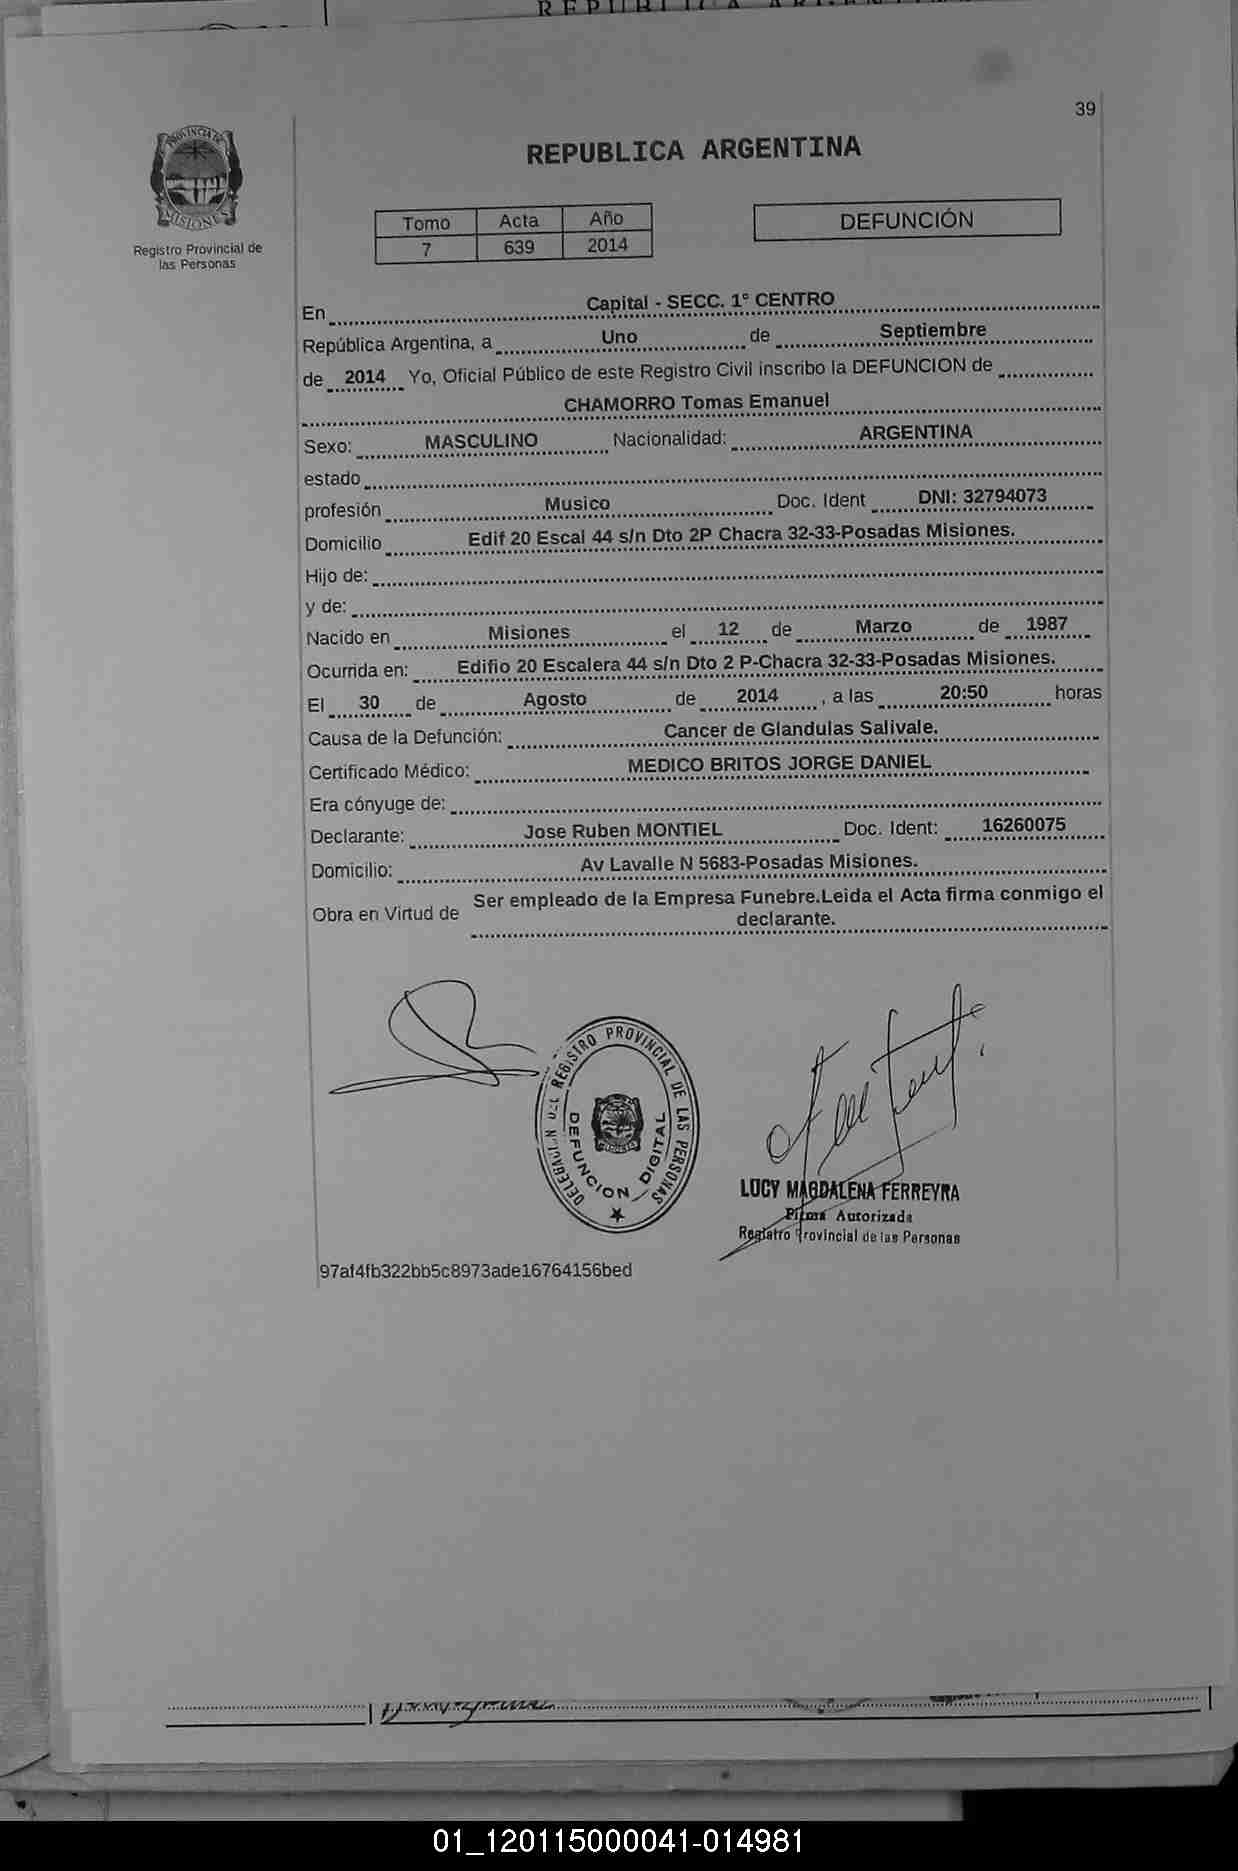 39
PROVINCIA DE
MISIONES
Registro Provincial de
las Personas
REPUBLICA ARGENTINA
Tomo Acta Año
7 639 2014
DEFUNCIÓN
En Capital - SECC. 1° CENTRO
República Argentina, a Uno de Septiembre
de 2014 Yo, Oficial Público de este Registro Civil inscribo la DEFUNCION de
CHAMORRO Tomas Emanuel
Sexo: MASCULINO Nacionalidad: ARGENTINA
estado
profesión Musico Doc. Ident DNI: 32794073
Domicilio Edif 20 Escal 44 s/n Dto 2P Chacra 32-33-Posadas Misiones.
Hijo de:
y de:
Nacido en Misiones el 12 de Marzo de 1987
Ocurrida en: Edifio 20 Escalera 44 s/n Dto 2 P-Chacra 32-33-Posadas Misiones.
El 30 de Agosto de 2014 , a las 20:50 horas
Causa de la Defunción: Cancer de Glandulas Salivale.
Certificado Médico: MEDICO BRITOS JORGE DANIEL
Era cónyuge de:
Declarante: Jose Ruben MONTIEL Doc. Ident: 16260075
Domicilio: Av Lavalle N 5683-Posadas Misiones.
Obra en Virtud de Ser empleado de la Empresa Funebre.Leida el Acta firma conmigo el
declarante.
DELEGACION DEL REGISTRO PROVINCIAL DE LAS PERSONAS
DEFUNCION DIGITAL
LUCY MAGDALENA FERREYRA
Firma Autorizada
Registro Provincial de las Personas
97af4fb322bb5c8973ade16764156bed
01_120115000041-014981